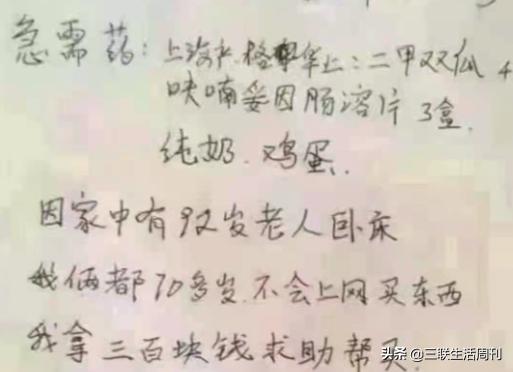 急需药：上海产格华止：二甲双瓜 4
呋喃妥因肠溶片 3盒.
纯奶.鸡蛋.
因家中有92岁老人卧床
我俩都70多岁.不会上网买东西
我拿三百块钱求助帮买.
头条 @三联生活周刊